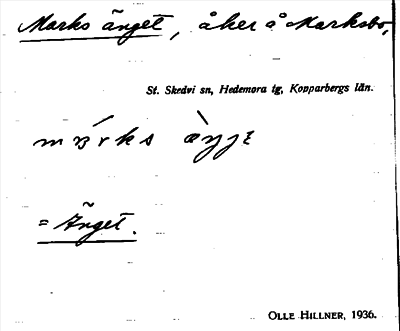 Marks änget, åker å Marksbo,
St. Skedvi sn, Hedemora tg, Kopparbergs län.
= Änget.
OLLE HILLNER, 1936.